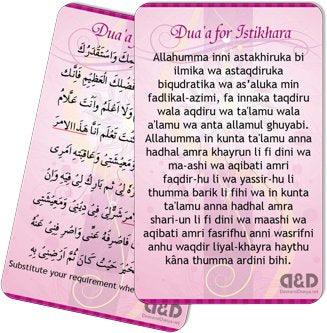 Dua'a for
وَاسْتَقْدِرُكَ
فَضْلِكَ الْعَظِيْمِ فَإِنَّكَ
وَلَا أَعْلَمُ وَأَنْتَ عَلَّامُ
كُنْتَ تَعْلَمُ أَنَّ هٰذَا الْأَمْرَ
وَمَعِيْشَتِيْ وَعَاقِبَةِ أَمْرِيْ
لِيْ ثُمَّ بَارِكْ لِيْ فِيْهِ وَإِنْ
لِيْ فِيْ دِيْنِيْ وَمَعِيْشَتِيْ
فَاصْرِفْهُ عَنِّيْ وَاصْرِفْنِيْ عَنْهُ
حَيْثُ كَانَ ثُمَّ أَرْضِنِيْ بِهِ
Substitute your requirement
Dua'a for Istikhara
Allahumma inni astakhiruka bi
ilmika wa astaqdiruka
biqudratika wa as'aluka min
fadlikal-azimi, fa innaka taqdiru
wala aqdiru wa ta'lamu wala
a'lamu wa anta allamul ghuyabi.
Allahumma in kunta ta'lamu anna
hadhal amra khayrun li fi dini wa
ma-ashi wa aqibati amri
faqdir-hu li wa yassir-hu li
thumma barik li fihi wa in kunta
ta'lamu anna hadhal amra
shari-un li fi dini wa maashi wa
aqibati amri fasrifhu anni wasrifni
anhu waqdir liyal-khayra haythu
kâna thumma ardini bihi.
D&D
DawateDuniya.net